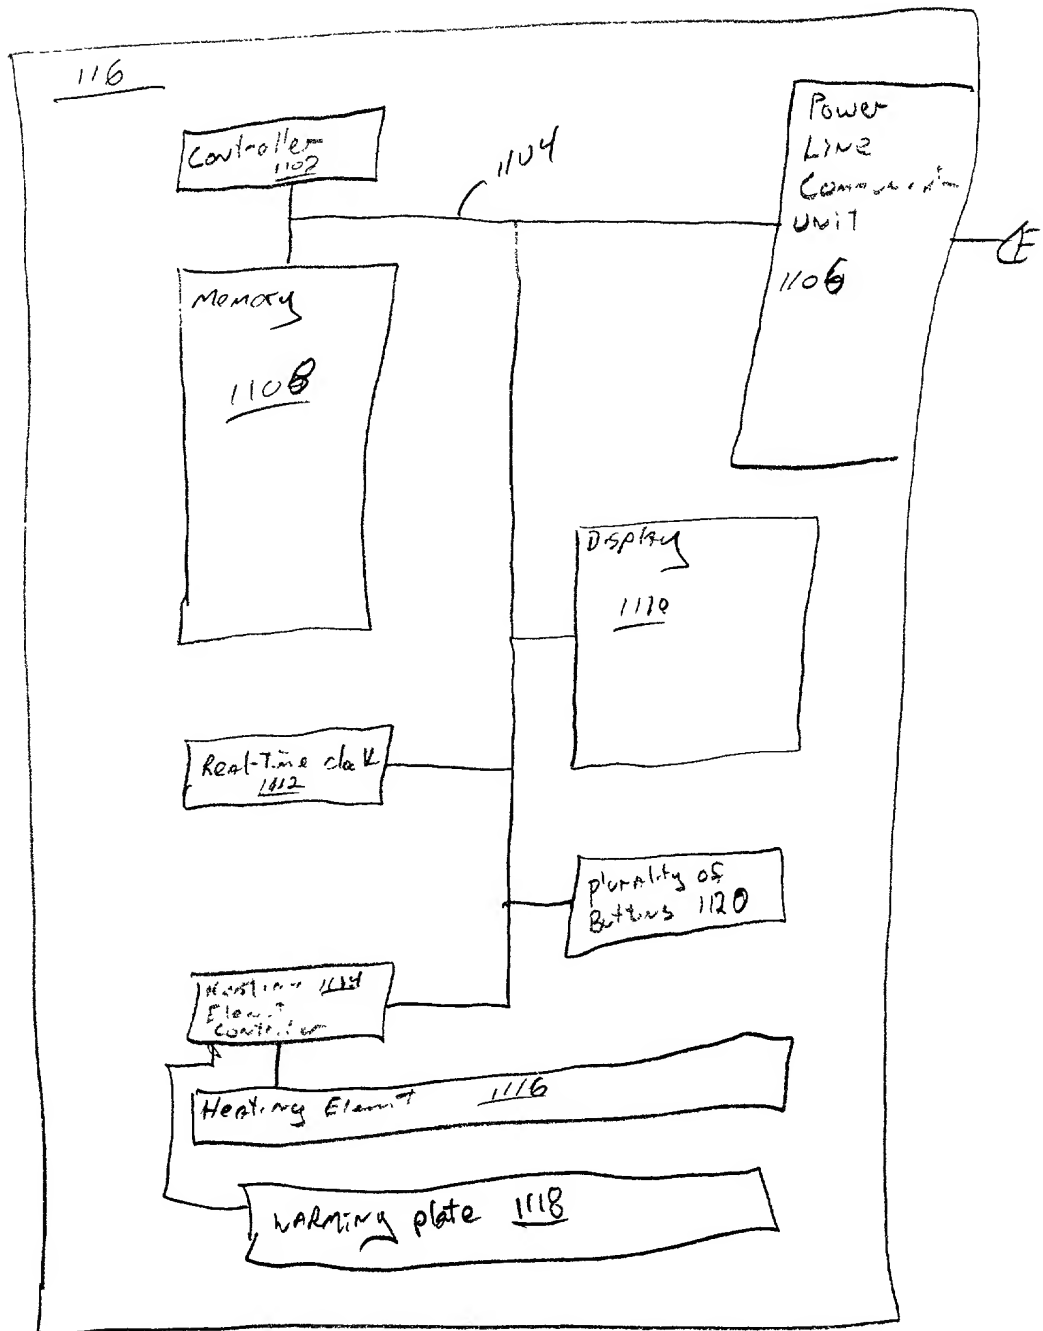 116
Controller
1102
1104
Power
Line
UNIT
1106
Memory
1108
Display
1110
Real-Time clock
1112
plurality of
Buttons 1120
1114
Element
Controller
Heating Element 1116
WARMING plate 1118